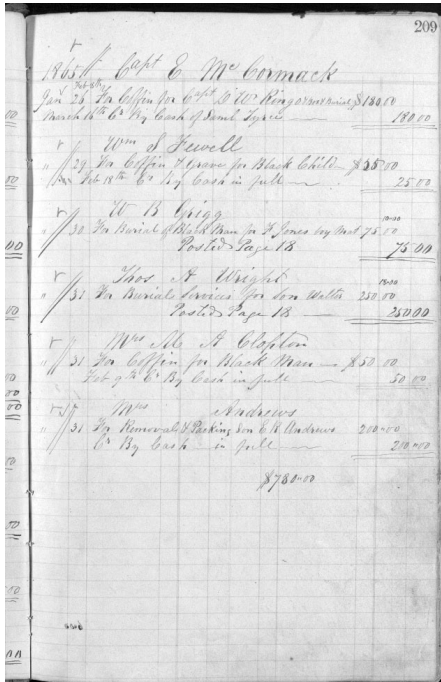 209
1865 Capt E Mc Cormack
Jany 26 For Coffin for Capt D W Ringo & Burial $180.00
March 16th Cr By Cash of Saml Tyree 180 00
Wm S Fewell
" 29 For Coffin & Grave for Black Child $25 00
Feb 18th Cr By Cash in full 25 00
W B Grigg
" 30 For Burial of Black Man for F Jones by 75 00
Posted Page 18 75 00
Thos A Wright
" 31 For Burial Services for Son Walter 250 00
Posted Page 18 250 00
Mrs A Clopton
" 31 For Coffin for Black Man $50 00
Feb 9th Cr By Cash in full 50 00
Mrs Andrews
" 31 For Removal & Packing Son E R Andrews 200 00
Cr By Cash in full 200 00
$780 00